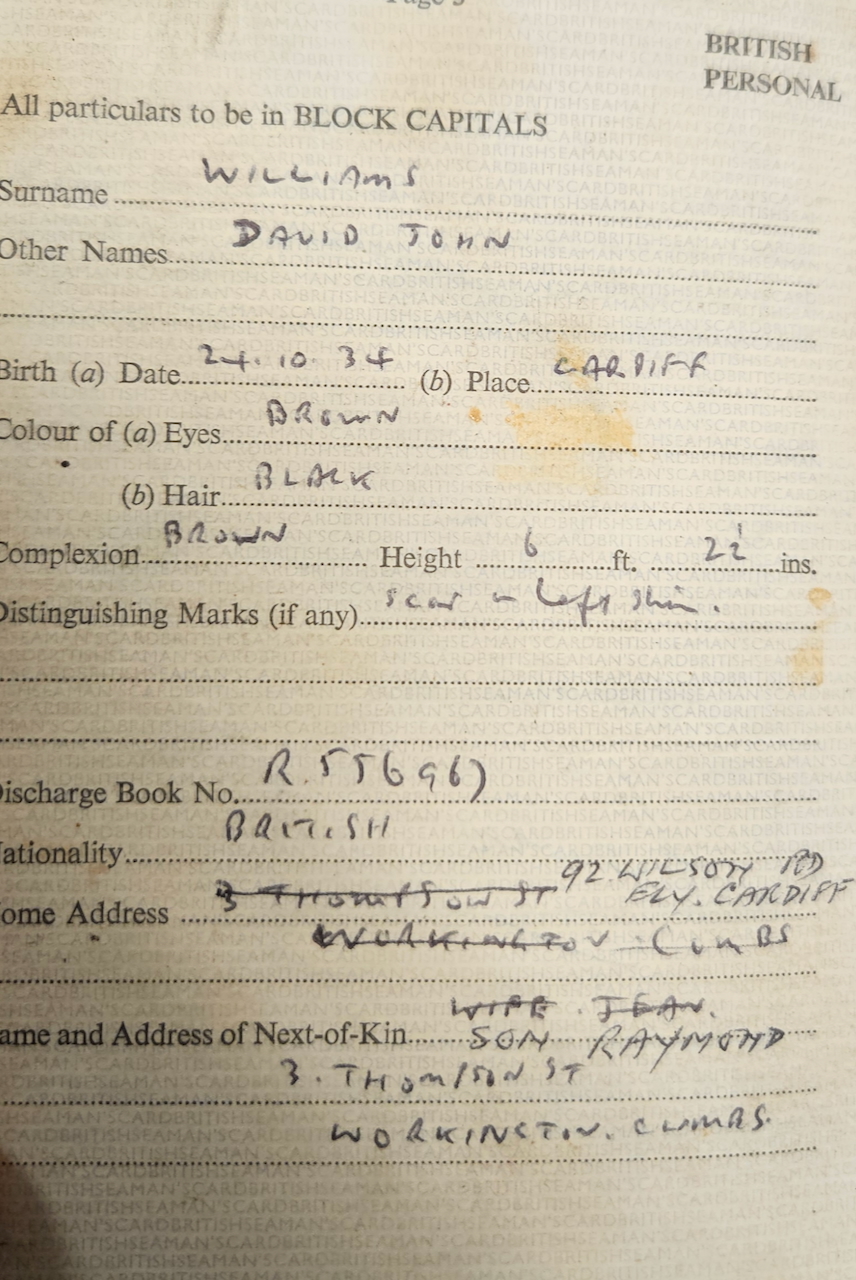 Page 3
BRITISH
PERSONAL
All particulars to be in BLOCK CAPITALS
Surname WILLIAMS
Other Names DAVID JOHN
Birth (a) Date 24.10.34 (b) Place CARDIFF
Colour of (a) Eyes BROWN
(b) Hair BLACK
Complexion BROWN Height 6 ft. ins.
Distinguishing Marks (if any) scar on left shin.
Discharge Book No. R.
Nationality BRITISH
92 WILSON RD
Home Address 3 THOMPSON ST ELY. CARDIFF
WORKINGTON CUMBS
WIFE. JEAN.
Name and Address of Next-of-Kin SON RAYMOND
3. THOMPSON ST
WORKINGTON. CUMBS.